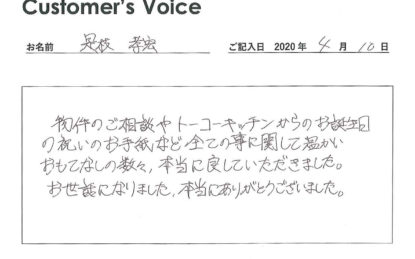 Customer's Voice
お名前 是枝 孝宏 ご記入日 2020 年 4 月 10 日
物件のご相談やトーコーキッチンからのお誕生日
の祝いのお手紙など全ての事に関して温かい
おもてなしの数々、本当に良していただきました。
お世話になりました、本当にありがとうございました。